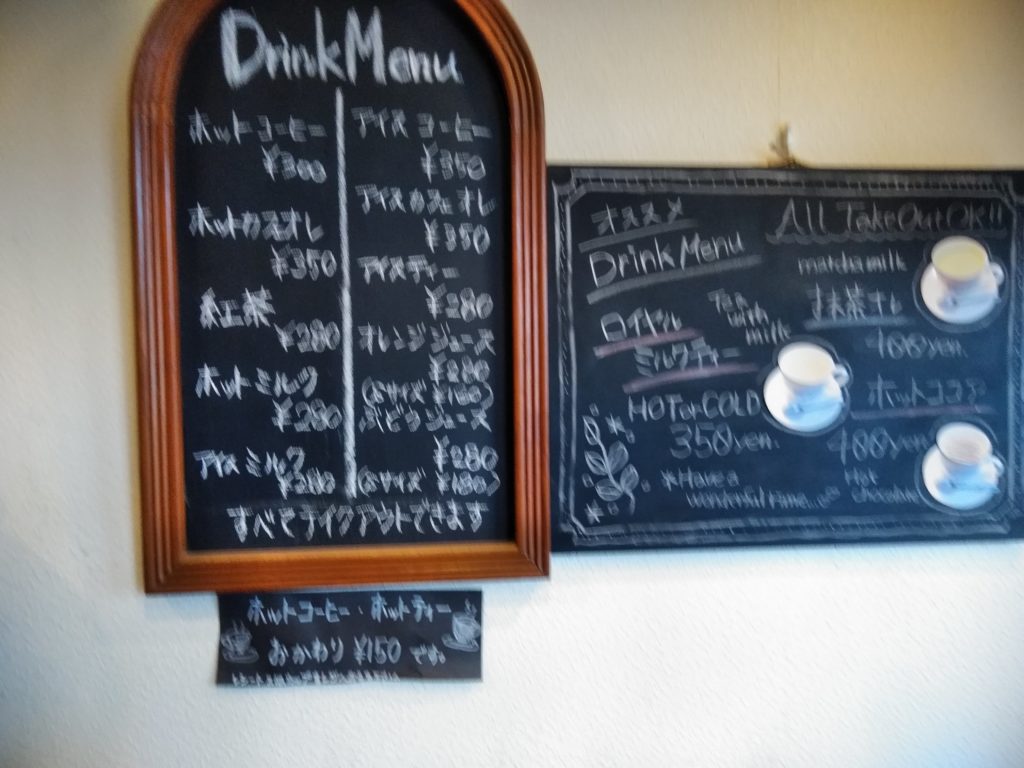 Drink Menu
ホットコーヒー
¥300
ホットカフェオレ
¥350
紅茶
¥280
ホットミルク
¥280
アイスミルク
¥280
アイスコーヒー
¥350
アイスカフェオレ
¥350
アイスティー
¥280
オレンジジュース
¥280
(Sサイズ ¥180)
ぶどうジュース
¥280
(Sサイズ ¥180)
すべてテイクアウトできます
ホットコーヒー・ホットティー
おかわり ¥150 です。
オススメ
Drink Menu
ロイヤル
ミルクティー
Tea
with
milk
HOT or COLD
350yen.
*Have a
wonderful time...
All Take Out OK!!
matcha milk
抹茶オレ
400yen.
ホットココア
400yen
Hot
chocolate